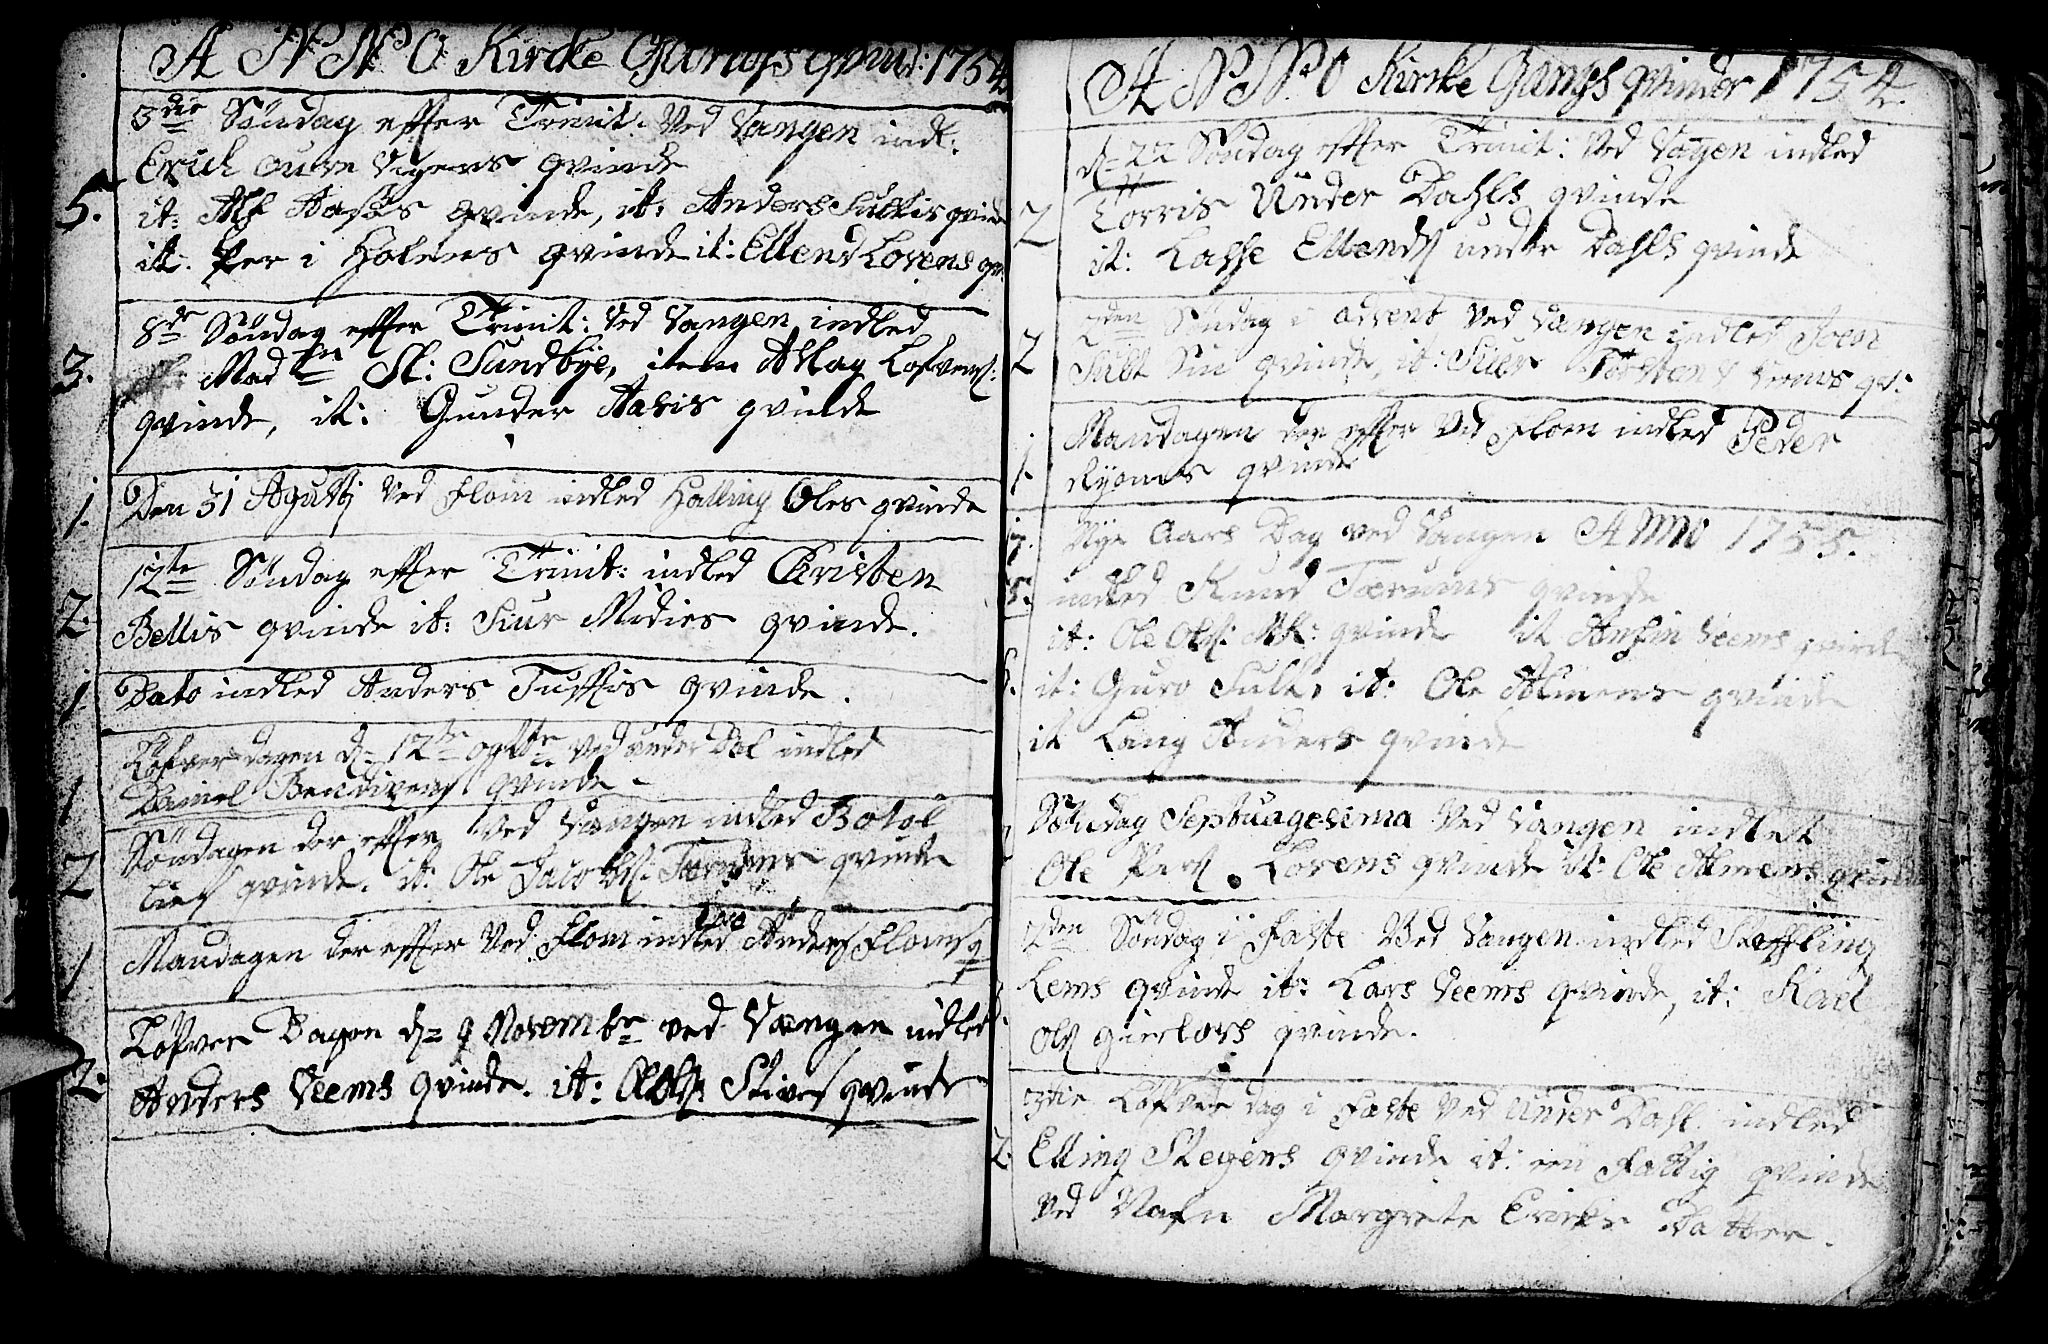 ANNO Kircke Gangs qvind: 1754
3die Søndag effter Trinit: Ved Vangen indl:
Erich qvinde
5. it: Alf Aases qvinde, it: Anders Sultis qvinde
it: Per i Holmens qvinde it: Ellend Lovens qv:
8de Søndag effter Trinit: Ved Vangen indled
3. Madtn Sl: Sundbÿe, item Aslag Lofvens:
qvinde, it: Gunder Aasis qvinde
1. Den 31 Agusti Ved Flom indled Halling Oles qvinde
12te Søndag effter Trinit: indled Christen
2. Bellis qvinde it: Siur Midies qvinde.
1 Dato indled Anders Tuffis qvinde.
Løfverdagen d= 12te octbr Ved under Dal indled
1 Daniel qvinde
Søndagen der effter Ved Vangen indled Botol
2 Lies qvinde. it: Ole Jacobs: qvinde
1 Mandagen der effter Ved Flom indled Anders Floms q
Løfver Dagen d= 9 Novembr ved Vangen indled
2. Anders Veems qvinde. it: Ole Ols: Skives qvinde
ANNO Kirke Gangs qvinder 1754.
d= 22 Søndag effter Trinit: Ved Vangen indled
2 Torris Under Dahls qvinde
it: Lasse Ellends under Dahls qvinde
2den Søndag i advent Ved Vangen indled
2 qvinde, it: Siur Torstens qv:
Mandagen der effter Ved Flom indled Peder
1. Ryoms qvinde
Nye Aars Dag ved Vangen Anno 1755.
indled Knud Tærums qvinde
it: Ole Ols: qvinde it Ansin Veems qvinde
it: Guro Sult, it: Ole Almens qvinde
it Lang Anders qvinde
Søndag Septuagesima Ved Vangen indled
Ole Pers. Lovens qvinde it: Ole Almens qvinde
2den Søndag i Faste Ved Vangen indled Steffling
Lems qvinde it: Lars Veems qvinde, it:
Ols gierlovs qvinde.
3die Løfver dag i Faste Ved Under Dahl. indled
2. Elling Stegens qvinde it: en Fattig qvinde
Ved Nafn Margrete Erichs Datter.